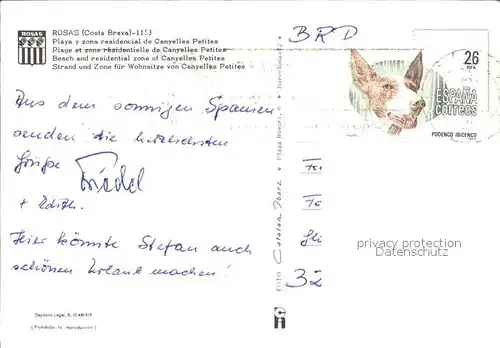 ROSAS
ROSAS (Costa Brava)-1153
Playa y zona residencial de Canyelles Petites
Plage et zone résidentielle de Canyelles Petites
Beach and residential zone of Canyelles Petites
Strand und Zone für Wohnsitze von Canyelles Petites
BRD
26
PTA
ESPAÑA
CORREOS
PODENCO IBICENCO
Aus dem sonnigen Spanien
senden die herzlichsten
Grüße Friedel
+ Edith.
Hier könnte Stefan auch
schönen Urlaub machen!
32
privacy protection
Datenschutz
FOTO
Depósito Legal, B.
(Prohibida la reproducción)